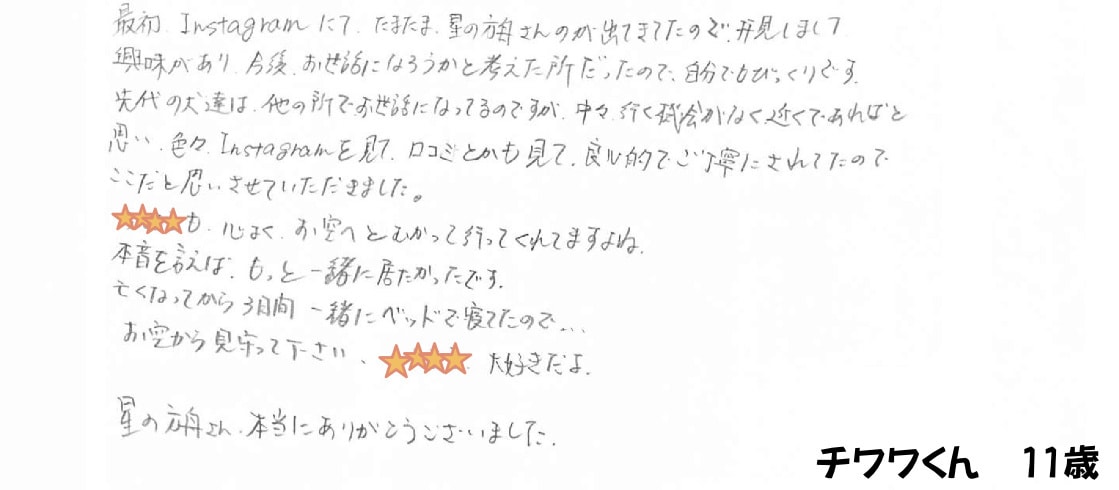 最初、Instagramにて、たまたま、星の方舟さんのが出てきてたので、拝見しまして
興味があり、今後、お世話になろうかと考えた所だったので、自分でもびっくりです。
先代の犬達は、他の所でお世話になってるのですが、中々、行く機会がなく近くであればと
思い、色々、Instagramを見て、口コミとかも見て、良心的でご丁寧にされてたので
ここだと思いさせていただきました。
も、心よく、お空へとむかって行ってくれてますよね。
本音を言えば、もっと一緒に居たかったです。
亡くなってから3日間 一緒にベッドで寝てたので…
お空から見守って下さい、 大好きだよ。
星の方舟さん、本当にありがとうございました。
チワワくん 11歳